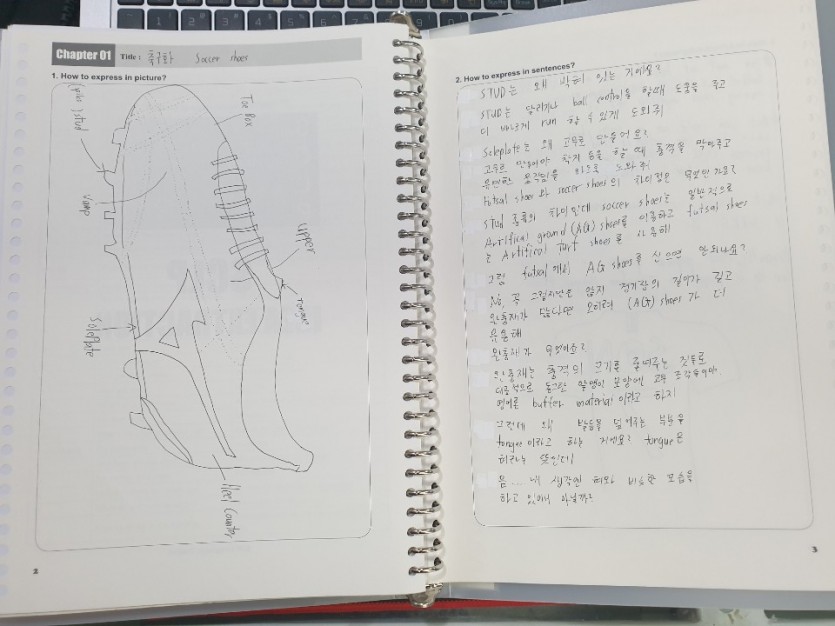 Chapter 01 Title : 축구화 Soccer shoes
1. How to express in picture?
Toe Box
stud
Vamp
Upper
Tongue
Soleplate
Heel Counter
2
2. How to express in sentences?
STUD는 왜 박혀 있는 거에요?
STUD는 달리거나 ball control을 할때 도움을 주고
더 빠르게 run 할 수 있게 도와줘
Soleplate는 왜 고무로 만들어요?
고무로 만들어야 착지 등을 할 때 충격을 막아주고
유연한 움직임을 하도록 도와줘
futsal shoes와 soccer shoes의 차이점은 무엇인가요?
STUD 종류의 차이인데 soccer shoes는 일반적으로
Artifical ground (AG) shoes를 이용하고 futsal shoes
는 Artifical turf shoes를 사용해
그럼 futsal 에서 AG shoes를 신으면 안되나요?
No, 꼭 그렇지만은 않지 경기장의 길이가 길고
완충재가 많다면 오히려 (AG) shoes가 더
유용해
완충재가 무엇이죠?
완충재는 충격의 크기를 줄여주는 것들로
대표적으로 동그란 알갱이 모양에 고무 조각들이야.
영어론 buffer material 이라고 하지
그런데 왜 발등을 덮어주는 부분을
tongue 이라고 하는 거에요? tongue은
혀라는 뜻인데!
음... 내 생각엔 혀와 비슷한 모습을
하고 있어서 아닐까?
3